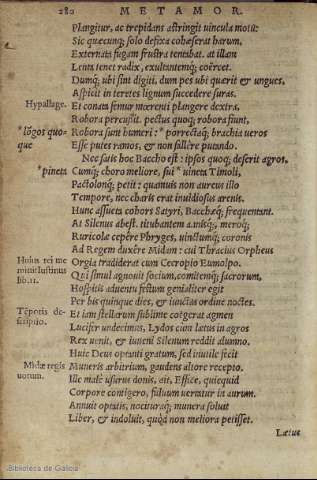 280 METAMOR.
Plangitur, ac trepidans astringit uincula motu:
Sic quæcunq; solo defixa cohæserat harum,
Externata fugam frustra tentabat. at illam
Lenta tenet radix, exultantemq; coërcet.
Dumq; ubi sint digiti, dum pes ubi quærit & ungues,
Aspicit in teretes lignum succedere suras.
Hypallage. Et conata femur mœrenti plangere dextra,
Robora percussit. pectus quoq; robora fiunt,
*lōgos quoque Robora sunt humeri: * porrectaq; brachia ueros
Esse putes ramos, & non fallêre putando.
Nec satis hoc Baccho est: ipsos quoq; deserit agros,
*pineta Cumq; choro meliore, sui * uineta Timoli,
Pactolonq; petit: quamuis non aureus illo
Tempore, nec charis erat inuidiosus arenis.
Hunc assueta cohors Satyri, Bacchæq; frequentant.
At Silenus abest. titubantem annisq; meroq;
Ruricolæ cepêre Phryges, uinctumq; coronis
Ad Regem duxêre Midam: cui Thracius Orpheus
Huius rei meminit Iustinus lib.11. Orgia tradiderat cum Cecropio Eumolpo.
Qui simul agnouit socium, comitemq; sacrorum,
Hospitis aduentu festum genialiter egit
Per bis quinque dies, & iunctas ordine noctes.
Tēporis descriptio. Et iam stellarum sublime coëgerat agmen
Lucifer undecimus, Lydos cùm lætus in agros
Rex uenit, & iuueni Silenum reddit alumno.
Huic Deus optanti gratum, sed inutile fecit
Midæ regis uotum. Muneris arbitrium, gaudens altore recepto.
Ille malè usurus donis, ait, Effice, quicquid
Corpore contigero, fuluum uertatur in aurum.
Annuit optatis, nocituraq; munera soluit
Liber, & indoluit, quòd non meliora petisset.
Lætus
Biblioteca de Galicia